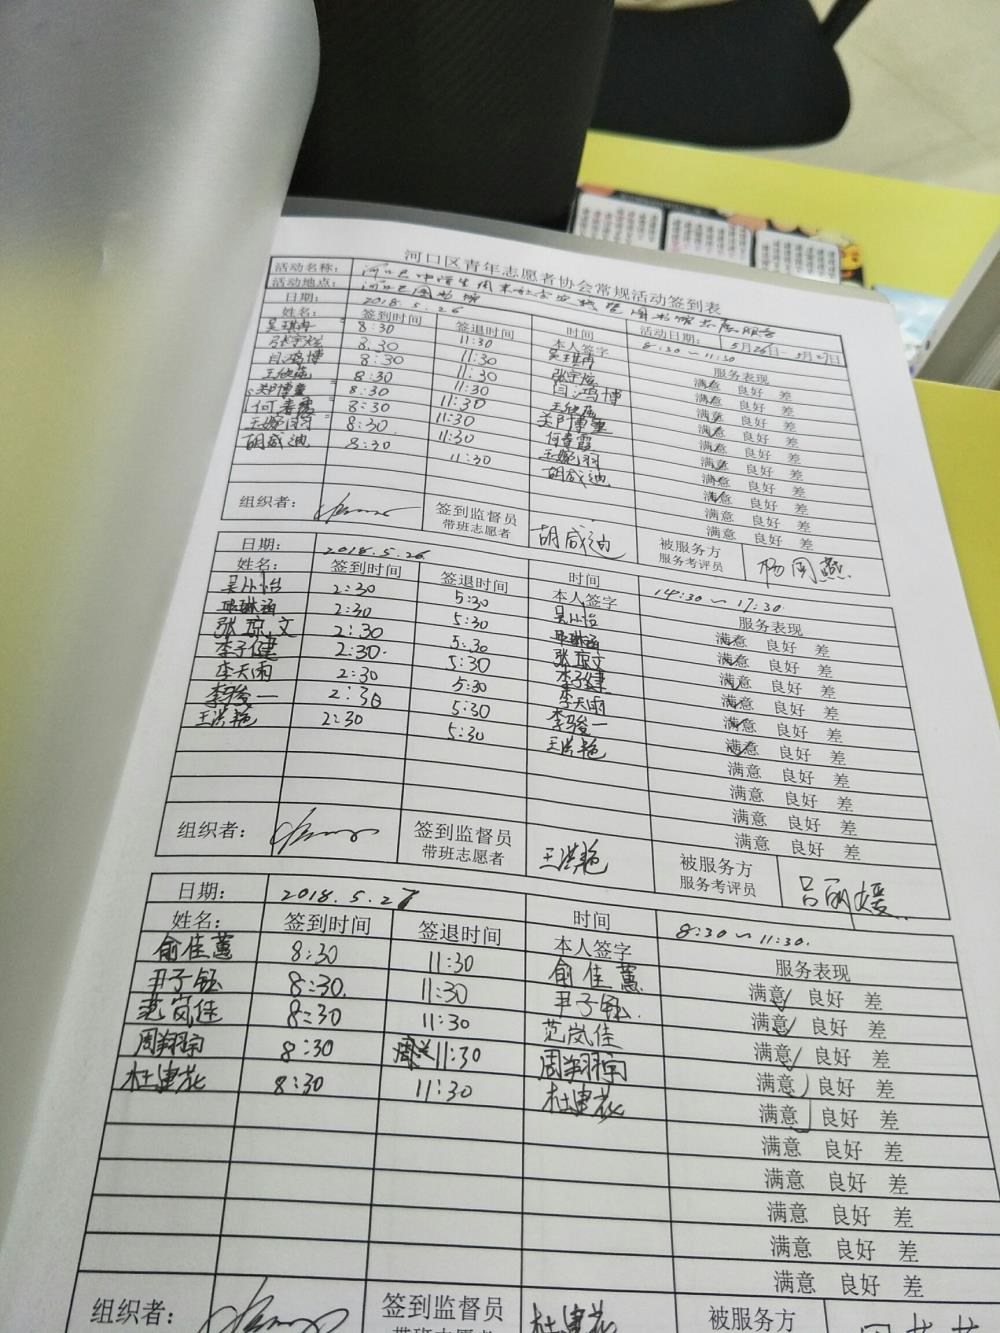 河口区青年志愿者协会常规活动签到表
活动名称： 河口区中学生周末社会实践暨图书馆志愿服务
活动地点： 河口区图书馆 活动日期： 5月26日-5月27日
日期： 2018.5.26 时间 8:30～11:30
姓名： 签到时间 签退时间 本人签字 服务表现
吴琪冉 8:30 11:30 吴琪冉 满意 良好 差
8:30 11:30 满意 良好 差
鸿博 8:30 11:30 鸿博 满意 良好 差
8:30 11:30 满意 良好 差
8:30 11:30 满意 良好 差
何春霞 8:30 11:30 何春霞 满意 良好 差
王婉羽 8:30 11:30 王婉羽 满意 良好 差
胡咸迪 8:30 11:30 胡咸迪 满意 良好 差
满意 良好 差
满意 良好 差
组织者： 签到监督员 带班志愿者 胡咸迪 被服务方 服务考评员 杨周燕
日期： 2018.5.26 时间 14:30～17:30
姓名： 签到时间 签退时间 本人签字 服务表现
吴心怡 2:30 5:30 吴心怡 满意 良好 差
琳涵 2:30 5:30 琳涵 满意 良好 差
张琼文 2:30 5:30 张琼文 满意 良好 差
李子健 2:30 5:30 李子健 满意 良好 差
李天雨 2:30 5:30 李天雨 满意 良好 差
李骏一 2:30 5:30 李骏一 满意 良好 差
王洪艳 2:30 5:30 王洪艳 满意 良好 差
满意 良好 差
满意 良好 差
满意 良好 差
组织者： 签到监督员 带班志愿者 王洪艳 被服务方 服务考评员 吕丽媛
日期： 2018.5.27 时间 8:30～11:30.
姓名： 签到时间 签退时间 本人签字 服务表现
俞佳蕙 8:30 11:30 俞佳蕙 满意 良好 差
尹子钰 8:30. 11:30 尹子钰. 满意 良好 差
范岚佳 8:30 11:30 范岚佳 满意 良好 差
周翔宇 8:30 11:30 周翔宇 满意 良好 差
杜建花 8:30 11:30 杜建花 满意 良好 差
满意 良好 差
满意 良好 差
满意 良好 差
满意 良好 差
满意 良好 差
组织者： 签到监督员 带班志愿者 杜建花 被服务方